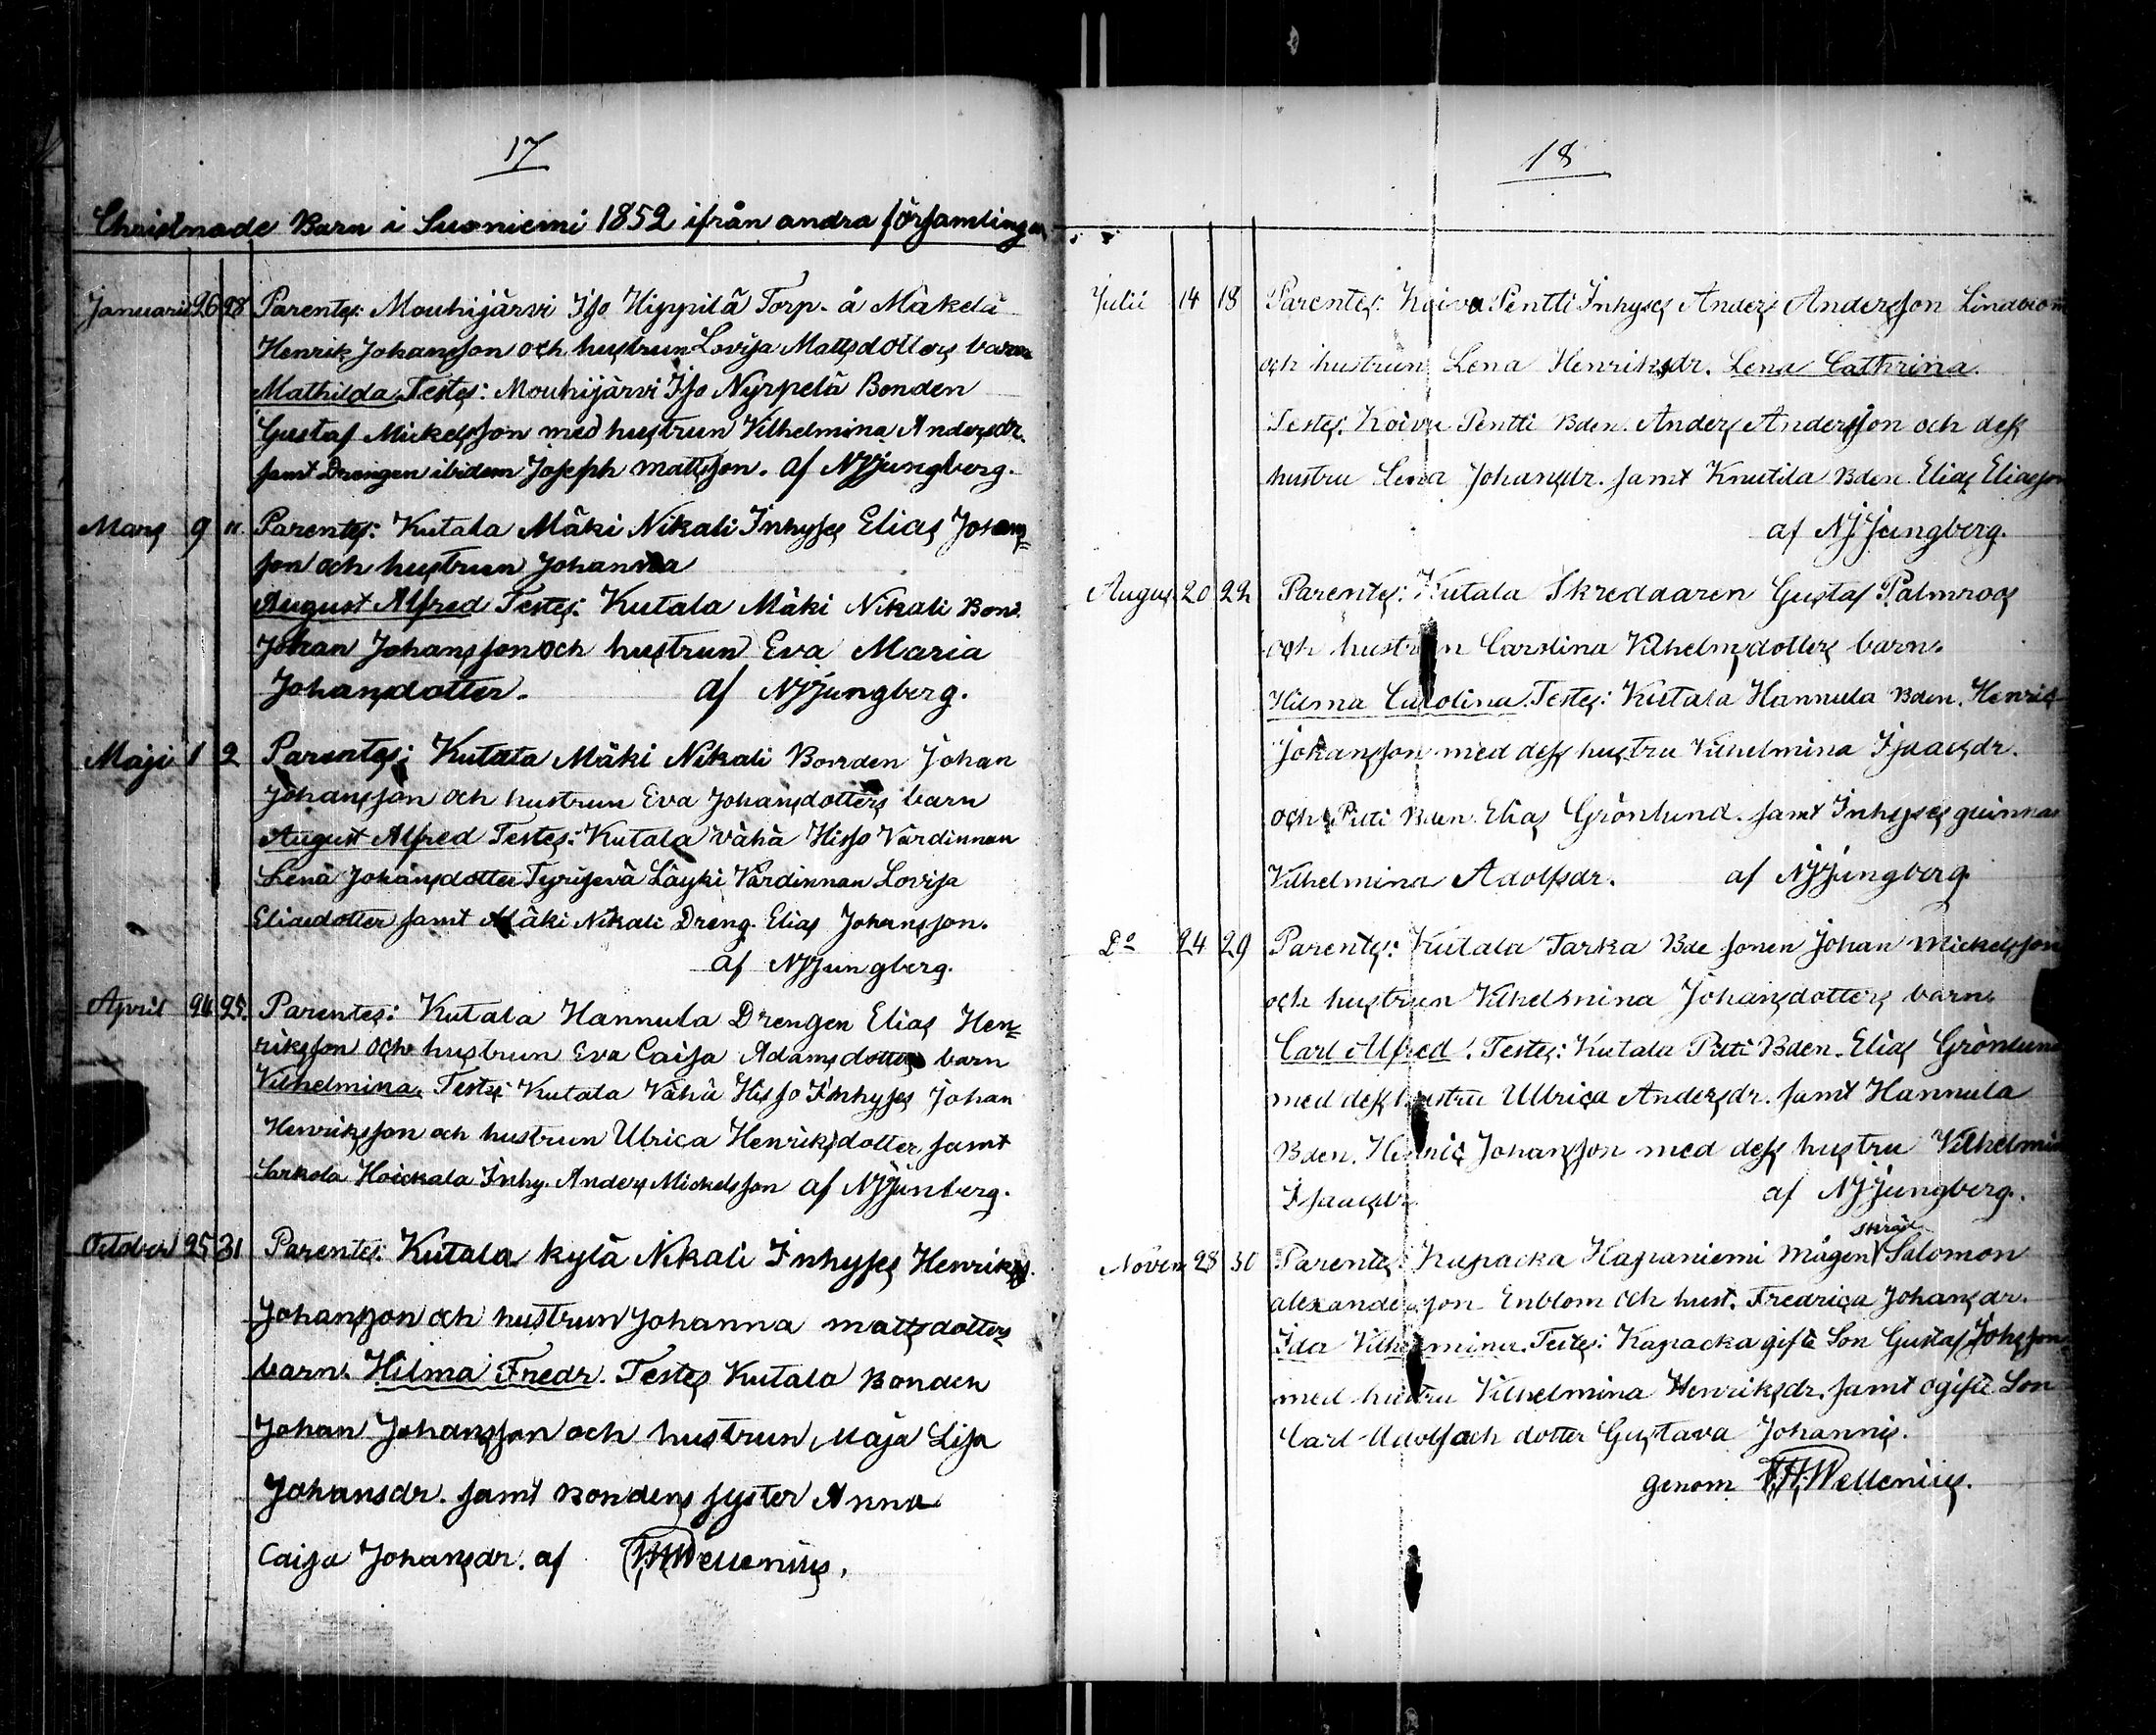 17
Christnade Barn i Suoniemi 1852 ifrån andra församlingar
Januarii 26 28 Parentes: Mouhijärvi Iso Hyppilä Torp. å Mäkelä
Henrik Johansson och hustrun Lovisa Mattsdotters barn
Mathilda Testes: Mouhijärvi Iso Nyrpelä Bonden
Gustaf Mickelsson med hustrun Vilhelmina Andersdr.
samt Drengen ibidem Joseph Mattsson. af NJjungberg.
Mars 9 11 Parentes: Kutala Mäki Nikali Inhyses Elias Johans=
son och hustrun Johanna
August Alfred Testes: Kutala Mäki Nikali Bond.
Johan Johansson och hustrun Eva Maria
Johansdotter. af NJjungberg.
Maji 1 2 Parentes: Kutala Mäki Nikali Bonden Johan
Johansson och hustrun Eva Johansdotters barn
August Alfred Testes: Kutala Vähä Hisso Värdinnan
Lena Johansdotter Tyrisevä Läyki Värdinnan Lovisa
Eliaedotter samt Mäki Nikali Dreng. Elias Johansson.
af NJjungberg.
April 24 25. Parentes: Kutala Hannula Drengen Elias Hen=
riksson och hustrun Eva Caisa Adamsdotters barn
Vilhelmina. Testes: Kutala Vähä Hisso Inhyses Johan
Henriksson och hustrun Ulrica Henriksdotter samt
Sarkola Hoickala Inhy. Anders Mickelsson af NJjunberg.
October 25 31 Parentes: Kutala kylä Nikali Inhyses Henriks
Johansson och hustrun Johanna Mattsdotters
barn. Hilma Fredr. Testes Kutala Bonden
Johan Johansson och hustrun Maja Lisa
Johansdr. samt Bondens syster Anna
Caisa Johansdr. af Wellenius.
18
Julii 14 18 Parentes: Koiva Pentti Inhyses Anders Andersson Lindroom
och hustrun Lena Henriksdr. Lena Cathrina.
Testes. Koivu Pentti Bden. Anders Andersson och dess
hustru Lena Johansdr. samt Knutila Bden. Elias Eliasson
af NJjungberg.
Augus 20 22 Parentes: Kutala Skreddaren Gustaf Palmroos
och hustrun Carolina Vilhelmsdotters barn.
Hilma Carolina. Testes: Kutala Hannula Bden. Henric
Johansson med dess hustru Vilhelmina Isaacsdr.
och Pitti Bden. Elias Grönlund. samt Inhyses quinnan
Vilhelmina Adolfsdr. af NJjungberg
Do 24 29 Parentes: Kutala Tarka Bde sonen Johan Mickelsson
och hustrun Vilhelmina Johansdotters barn
Carl Alfred. Testes: Kutala Pitti Bden. Elias Grönlund
med dess hustru Ullrica Andersdr. samt Hannula
Bden. Henric Johansson med dess hustru Vilhelmin
Isaacsdr. af NJjungberg.
skräd.
Novem 28 30 Parentes: Kapacka Hapaniemi Mågen Salomon
Alexandersson Enblom och hust. Fredrica Johansdr.
Ida Vilhelmina. Testes: Kapacka gifte Son Gustaf Johsson
med hustru Vilhelmina Henriksdr. samt ogifte Son
Carl Adolf och dotter Gustava Johannis.
genom Wellenius.